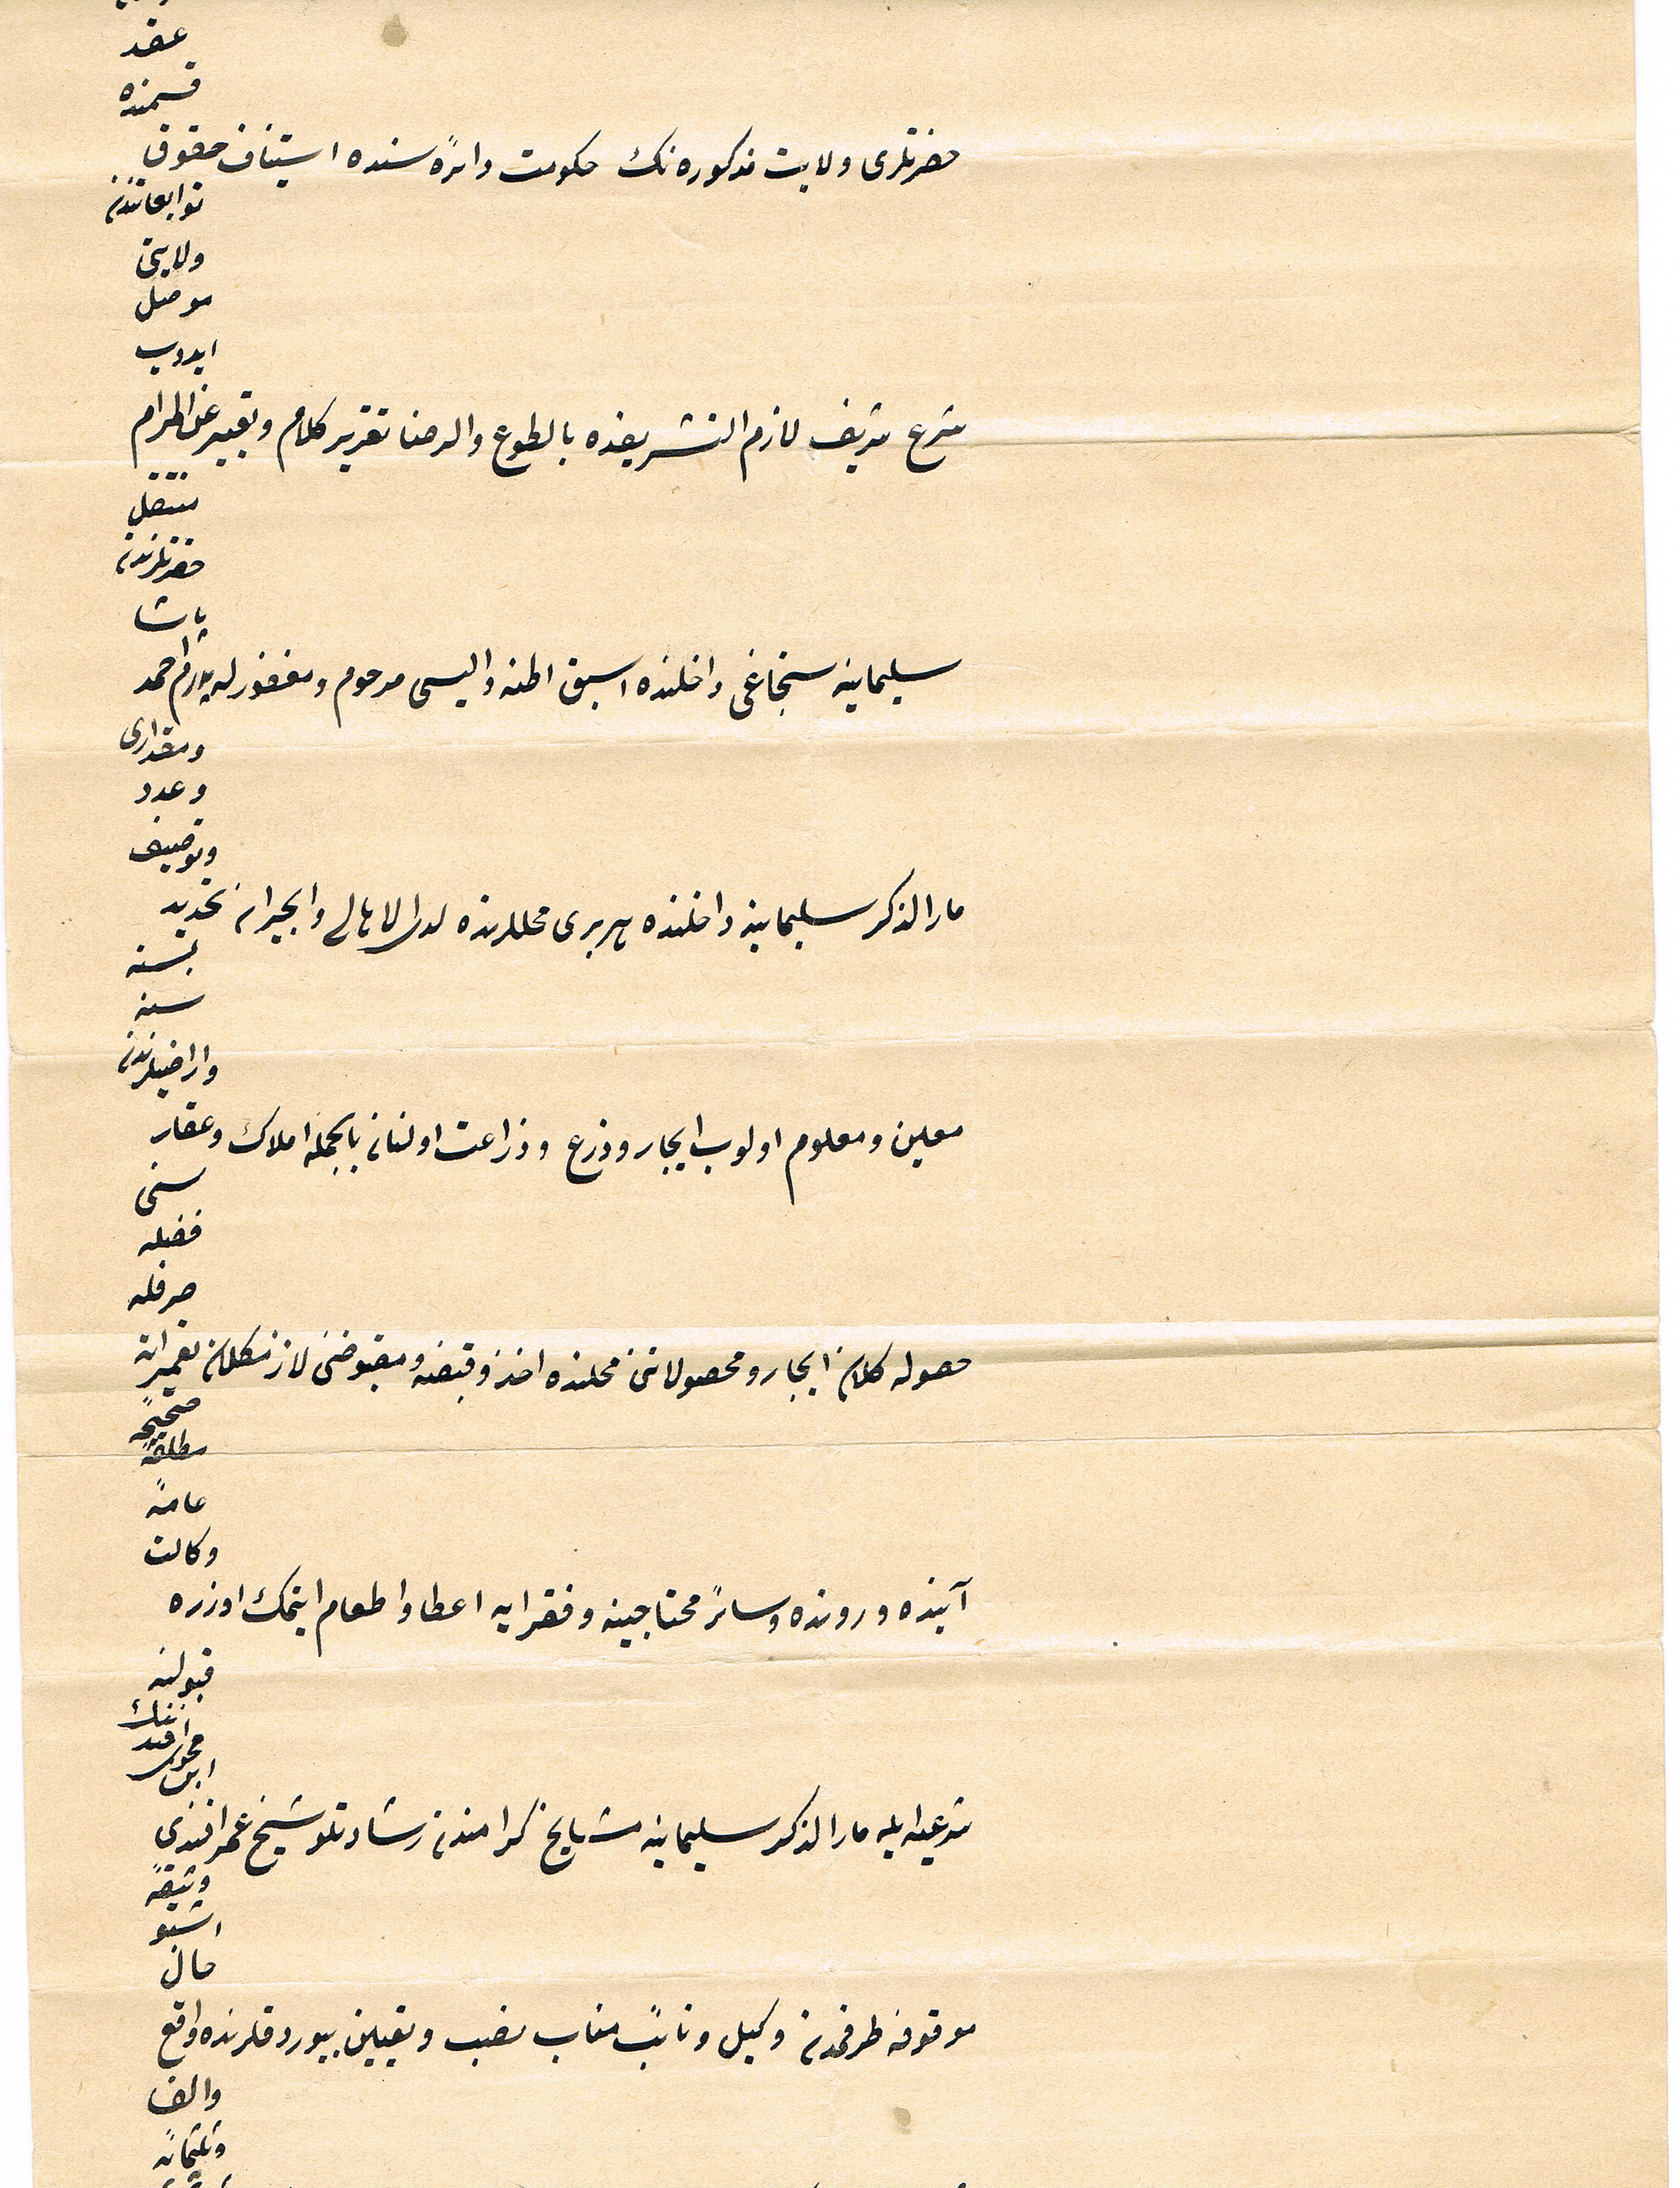 عقد
قسمنده
حضرتلری ولایت مذکوره نك حکومت دائره سنده استیناف حقوق
توابعاتندن
ولایتی
موصل
ایدوب
شرع شریف لازم التشریفده بالطوع والرضا تقریر کلام وتعبیر عن المرام
منتقل
حضرتلرندن
پاشا
سلیمانیه سنجاغی داخلنده اسبق اطنه والیسی مرحوم ومغفورله پدرم احمد
ومقداری
وعدد
وتوصیف
مارالذکر سلیمانیه داخلنده هربری محللرنده لدی الاهالی والجیران تحدید
بسنه
سنه
واراضیلرندن
معین ومعلوم اولوب ایجار وزرع وزراعت اولنان بالجمله املاك وعقار
سنی
فضله
صرفله
حصوله کلان ایجار ومحصولاتنی محلنده اخذ وقبضه ومقبوضنی لازمکلان تعمیراته
صحیحهٔ
مطلقهٔ
عامهٔ
وکالت
آینده ورونده وسائر محتاجینه وفقرایه اعطا واطعام ایتمك اوزره
قبولنه
افندینك
محوی
ابن
شرعیه ایله مارالذکر سلیمانیه مشایخ کرامندن رشادتلو شیخ عمر افندی
وثیقهٔ
اشبو
حال
موقوفه طرفمدن وکیل ونائب مناب نصب وتعیین بیوردقلرنده واقع
والف
وثلثمائه